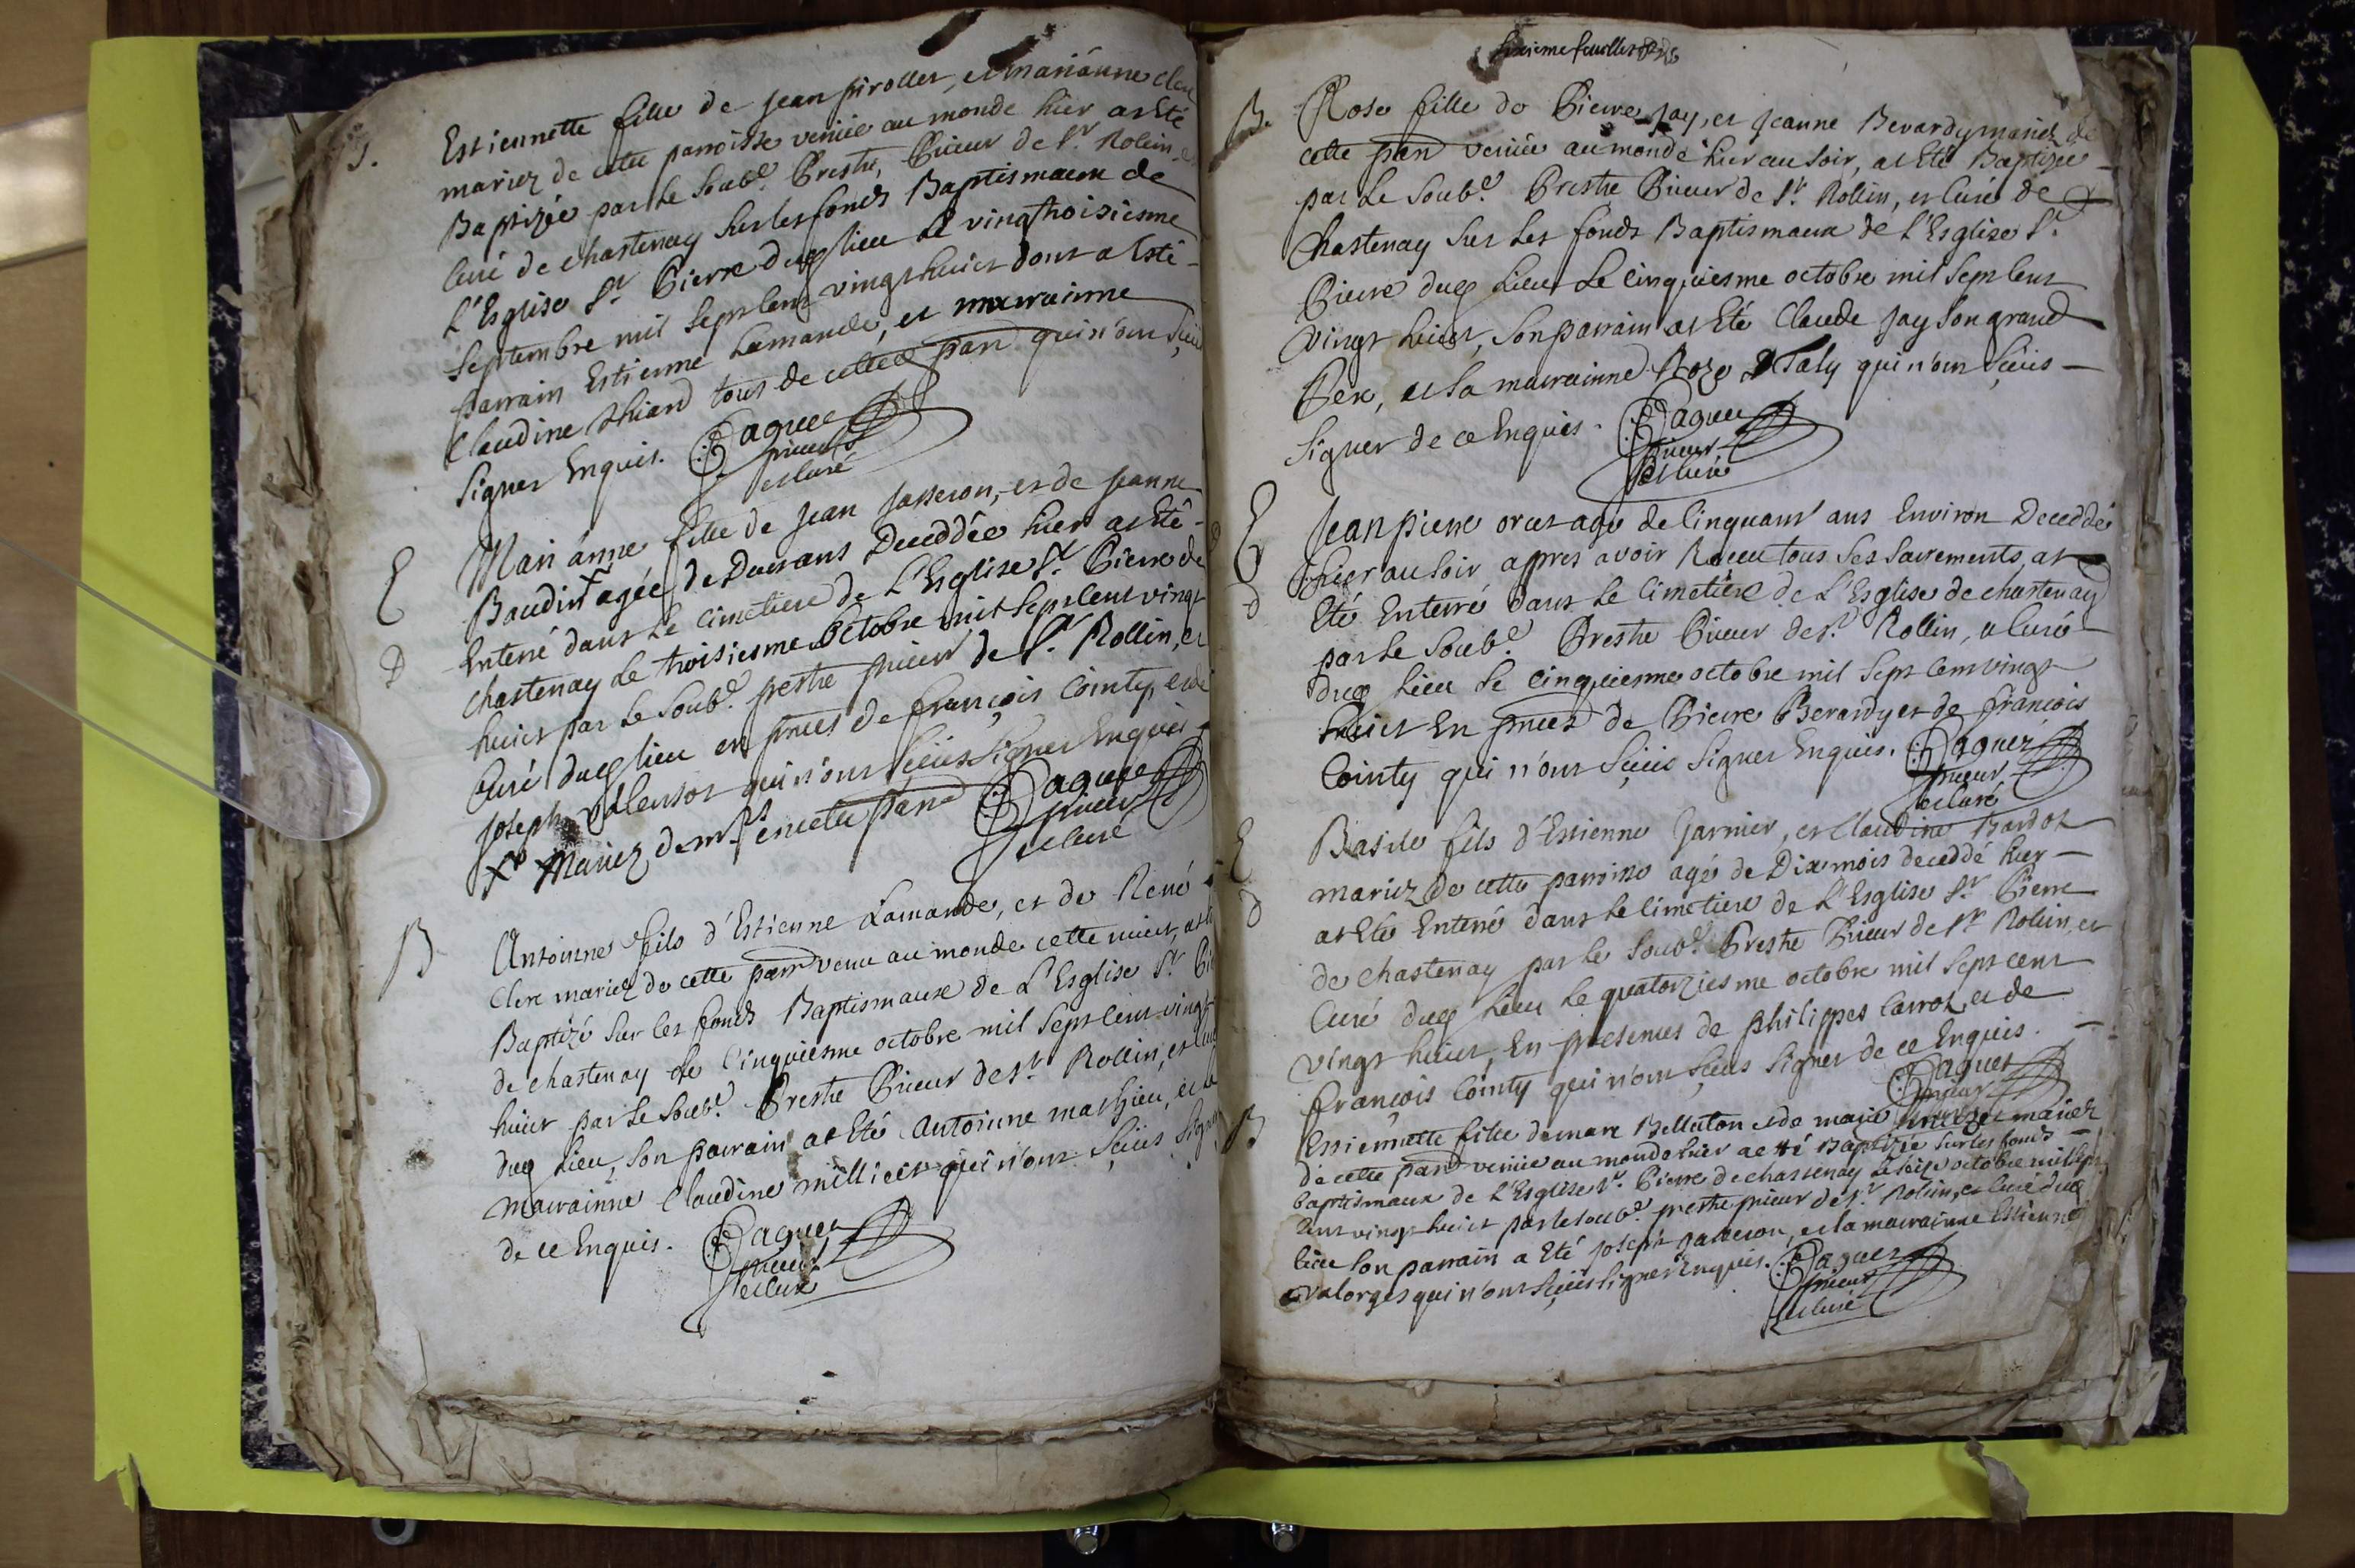 B.
Estiennette fille de Jean pirollet, et marianne Cler
mariez de cette parroisse venüe au monde hier at Eté
Baptizée par le Soub.é Prestre, Prieur de St. Rolin, et
Curé de chastenay Sur les fonds Baptismaux de
L'Eglise St. Pierre duq lieu le vingtroisiesme
Septembre mil Sept Cent vingt huict dont a Esté
parrain Estienne Lamande, et marrainne
Claudine thiard tous de cette parr qui n'ont Sceus
Signer Enquis. Daguet
prieur
et Curé
E
D
Marianne fille de Jean Jasseron, et de Jeanne
Baudin x agée de Deux ans Deceddée hier at Eté
Enterré dans le Cimetiere de L'Esglise St. Pierre de
Chastenay le troisiesme Octobre mil Sept Cent vingt
huict par le Soub.é prestre prieur de St. Rollin, et
Curé duq lieu en pnces de François Cointy, et de
Joseph qui n'ont Sceus Signer Enquis
x Mariez de cette parr Daguet
prieur
et Curé
B
Antoinne fils d'Estienne Lamande, et de René
Clere mariez de cette parr venu au monde cette nuict, at
Baptizé Sur les fonds Baptismaux de L'Esglise St.
de chastenay le Cinquiesme octobre mil Sept Cent vingt
huict par le Soub.é Prestre Prieur de St. Rollin, et Curé
duq Lieu, Son parrain at Eté Antoinne mathieu, et la
marrainne Claudine millieis qui n'ont Sceus Signer
de ce Enquis. Daguet
prieur
et Curé
B.
Rose fille de Pierre Jay, et Jeanne Berardy mariez de
cette parr venüe au monde hier au Soir, at Eté Baptizée
par le Soub.é Prestre Prieur de St. Rollin, et Curé de
Chastenay Sur les fonds Baptismaux de L'Esglise St.
Pierre duq Lieu Le Cinquiesme octobre mil Sept Cent
vingt huict, Son parrain at Eté Claude Jay Son grand
Pere, et Sa marrainne Roze Taly qui n'ont Sceus
Signer de ce Enquis. Daguet
prieur
et Curé
E
D
Jean pierre orcet agé de Cinquant ans Environ Deceddé
hier au Soir appres avoir Receu tous Ses Sacrements, at
Eté Enterré dans le Cimetiere de L'Esglise de chastenay
par le Soub.é Prestre Prieur de St. Rollin, et Curé
duq Lieu le cinquiesme octobre mil Sept Cent vingt
huict En pnces de Pierre Berardy et de François
Cointy qui n'ont Sceus Signer Enquis. Daguet
prieur
et Curé
E
D
Basile fils d'Estienne Garnier, et Claudine Bardot
mariez de cette parroisse agé de Dix mois deceddé hier
at Eté Enterré dans le Cimetiere de L'Esglise St. Pierre
de chastenay par le Soub.é Prestre Prieur de St. Rolin, et
Curé duq Lieu le quatorziesme octobre mil Sept cent
vingt huict, En presences de philippes Carrot et de
François Cointy qui n'ont Sceus Signer de ce Enquis.
Daguet
prieur
B
Estiennette fille de marc Belluton et de marie mariez
de cette parr venüe au monde hier at Eté Baptizée Sur les fonds
baptismaux de L'Esglise St. Pierre de chastenay Le Seize octobre mil Sept
Cent vingt huict par le Soub.é prestre prieur de St. Rolin, et Curé duq
lieu Son parrain a Eté Joseph Jasseron, et la marrainne Estienne
valorges qui n'ont Sceus Signer Enquis. Daguet
prieur
et Curé